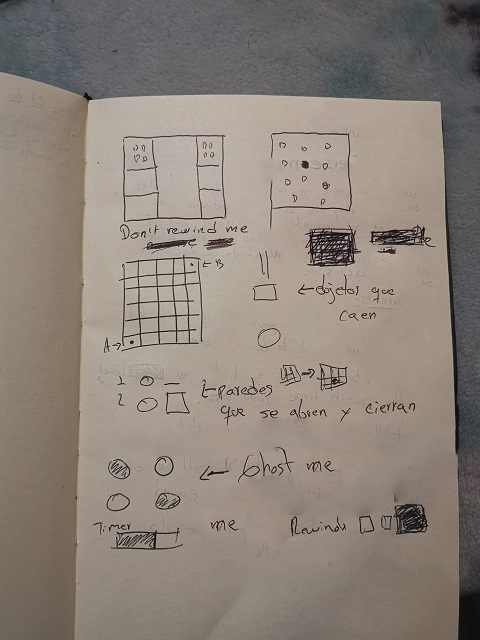 Don't rewind me
← B
← objetos que
caen
A →
1
2
← paredes
que se abren y cierran
← Ghost me
Timer
me
Rewinds